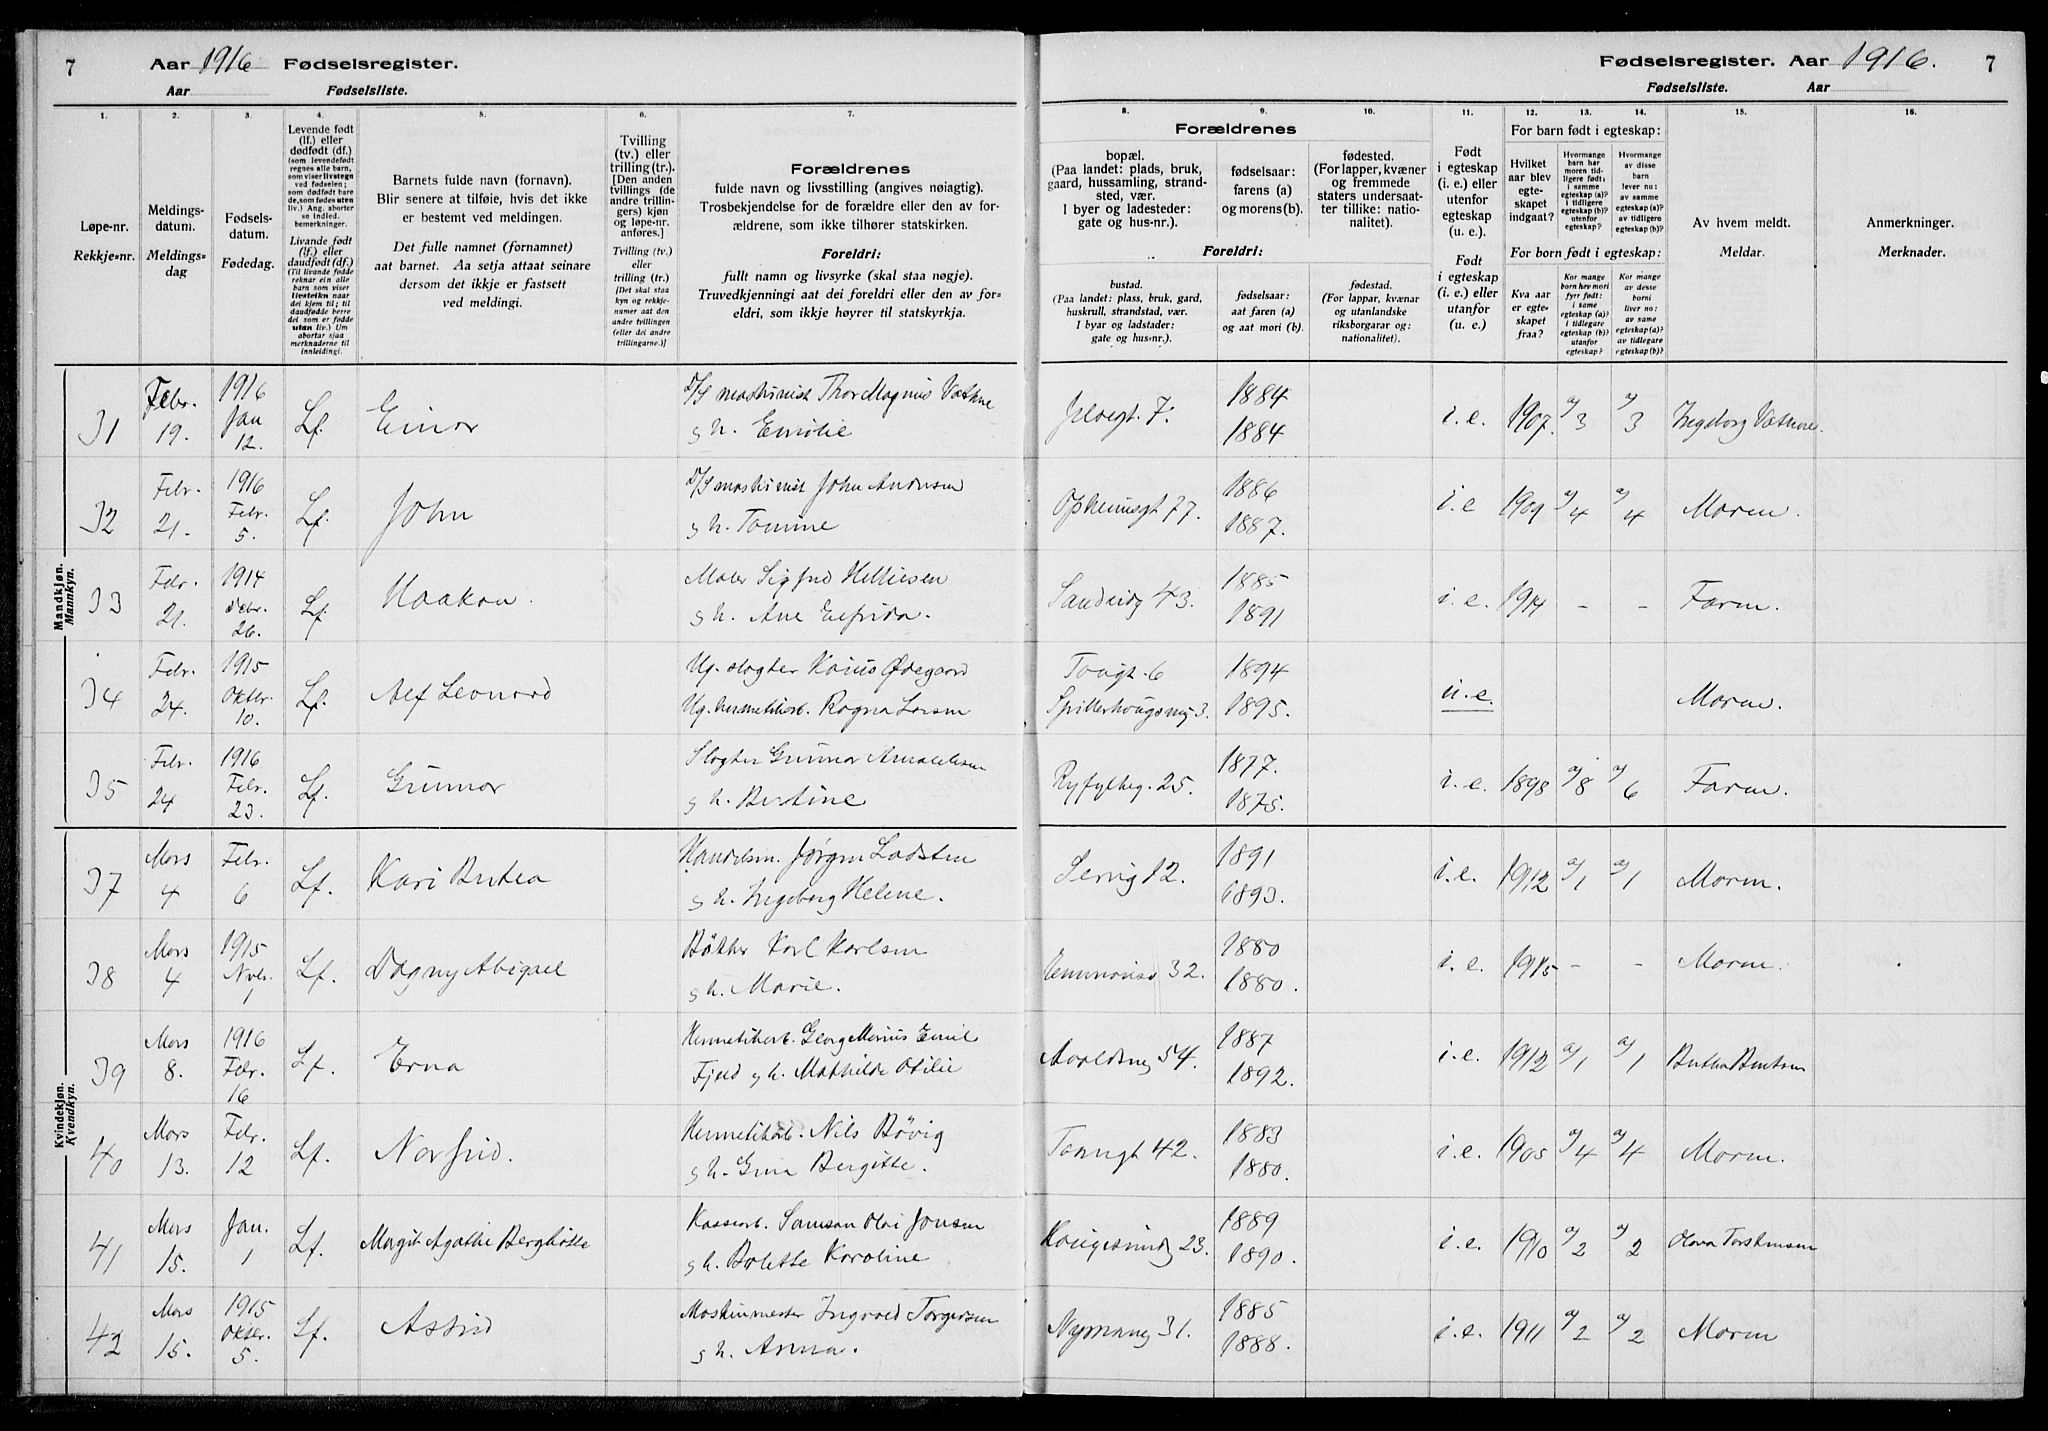 7 Aar 1916 Fødselsregister.
Aar Fødselsliste.
Fødselsregister. Aar 1916. 7
Fødselsliste. Aar
1. 2. 3. 4. 5. 6. 7.
8. 9. 10. 11. 12. 13. 14. 15. 16.
Løpe-nr.
Rekkje-nr.
Meldings-
datum.
Meldings-
dag
Fødsels-
datum.
Fødedag.
Levende født
(lf.) eller
dødfødt (df.)
(som levendefødt
regnes alle barn,
som viser livstegn
ved fødselen;
som dødfødt bare
de, som fødes uten
liv.) Ang. aborter
se indled.
bemerkninger.
Livande født
(lf.) eller
daudfødt (df.)
(Til livande fødde
reknar ein alle
barn som viser
livsteikn naar
dei kjem til; til
daudfødde berre
dei som er fødde
utan liv.) Um
abortar sjaa
merknaderne til
innleidingi.
Barnets fulde navn (fornavn).
Blir senere at tilføie, hvis det ikke
er bestemt ved meldingen.
Det fulle namnet (fornamnet)
aat barnet. Aa setja attaat seinare
dersom det ikkje er fastsett
ved meldingi.
Tvilling
(tv.) eller
trilling (tr.).
[Den anden
tvillings (de
andre trillin-
gers) kjøn
og løpe-nr.
anføres.]
Tvilling (tv.)
eller
trilling (tr.)
[Det skal staa
kyn og rekkje-
numer aat den
andre tvillingen
(eller dei andre
trillingarne.)]
Forældrenes
fulde navn og livsstilling (angives nøiagtig).
Trosbekjendelse for de forældre eller den av for-
ældrene, som ikke tilhører statskirken.
Foreldri:
fullt namn og livsyrke (skal staa nøgje).
Truvedkjenningi aat dei foreldri eller den av for-
eldri, som ikkje høyrer til statskyrkja.
Forældrenes
bopæl.
(Paa landet: plads, bruk,
gaard, hussamling, strand-
sted, vær.
I byer og ladesteder:
gate og hus-nr.).
fødselsaar:
farens (a)
og morens (b).
fødested.
(For lapper, kvæner
og fremmede
staters undersaat-
ter tillike: natio-
nalitet).
Foreldri:
bustad.
(Paa landet: plass, bruk, gard,
huskrull, strandstad, vær.
I byar og ladstader:
gate og hus-nr.).
fødselsaar:
aat faren (a)
og aat mori (b).
fødestad.
(For lappar, kvænar
og utanlandske
riksborgarar og:
nationalitet).
Født
i egteskap
(i. e.) eller
utenfor
egteskap
(u. e.).
Født
i egteskap
(i. e.) eller
utanfor
(u. e.)
For barn født i egteskap:
Hvilket
aar blev
egte-
skapet
indgaat?
Hvormange
barn har
moren tid-
ligere født:
i samme
egteskap (a)?
i tidligere
egteskap (b)?
utenfor
egteskap?
Hvormange
av disse
barn
lever nu:
av samme
egteskap (a)?
av tidligere
egteskap (b)?
For born født i egteskap:
Kva aar
er egte-
skapet
fraa?
Kor mange
born hev mori
fyrr født:
i same
egteskap (a)?
i tidlegare
egteskap (b)?
utanfor
egteskap?
Kor mange
av desse
borni
liver no:
av same
egteskap (a)?
av tidlegare
egteskap (b)?
Av hvem meldt.
Meldar.
Anmerkninger.
Merknader.
Mandkjøn.
Mannkyn.
31 Febr. 19. 1916 Jan 12. Lf. Einar D/S maskinist Thor Magnus Vathne
g h. Emilie 7. 1884 1884 i.e. 1907. a/3 a/3 Ingeborg Vathne.
32 Febr. 21. 1916 Febr. 5. Lf. John D/S maskinist John Andersen
g h. Tomine Opheimsgt 77. 1886 1887. i.e 1909 a/4 a/4 Moren.
33 Febr. 21. 1914 Debr. 26. Lf Haakon. Maler Sigfred Helliesen
g h. Ane Elfrida. Sandvidg 43. 1885 1891 i.e. 1914 - - Faren.
34 Febr. 24. 1915 Oktbr. 10. Lf. Alf Leonard Ug. slagter Kaius Ødegaard
Ug. hermetikarb. Ragna Larsen Tougt. 6 Spilderhougsveg 3. 1894 1895. u.e. Moren.
35 Febr. 24 1916 Febr. 23. Lf. Gunnar Slagter Gunnar
g h. Bertine Ryfylkeg. 25. 1877. 1875. i.e. 1898 a/8 a/6 Faren.
Kvindekjøn.
Kvendkyn.
37 Mars 4 Febr. 6 Lf. Kari Bertea Handelsm. Jørgen Ladsten
g h. Ingeborg Helene. 12. 1891 1893. i.e. 1912 a/1 a/1 Moren.
38 Mars 4 1915 Nvbr. 1 Lf. Dagny Abigael Bøkker Karl Karlsen
g h. Marie. 32. 1880 1880. i.e. 1915 - - Moren.
39 Mars 8. 1916 Febr. 16 Lf. Erna Hermetikarb. Georg Marius Emil
Fjeld g h. Mathilde Otilie Avaldsneg 54. 1887 1892. i.e. 1912 a/1 a/1 Bertha Berntsen
40 Mars 13. Febr. 12 Lf. Norfrid. Hermetikarb. Nils Bøvig
g h. Gina Bergitte. Taugt 42. 1883 1880. i.e. 1905 a/4 a/4 Moren.
41 Mars 15. Jan. 1 Lf. Margit Agathe Berghitte Kassearb. Samson Olai Jonsen
g h. Bolette Karoline Haugesundg 23. 1889 1890. i.e. 1910 a/2 a/2 Olava Torstensen
42 Mars 15. 1915 Oktbr. 5. Lf. Astrid Maskinmester Ingvald Torgersen
g h. Anna. Nymansg 31. 1885 1888. i.e. 1911 a/2 a/2 Moren